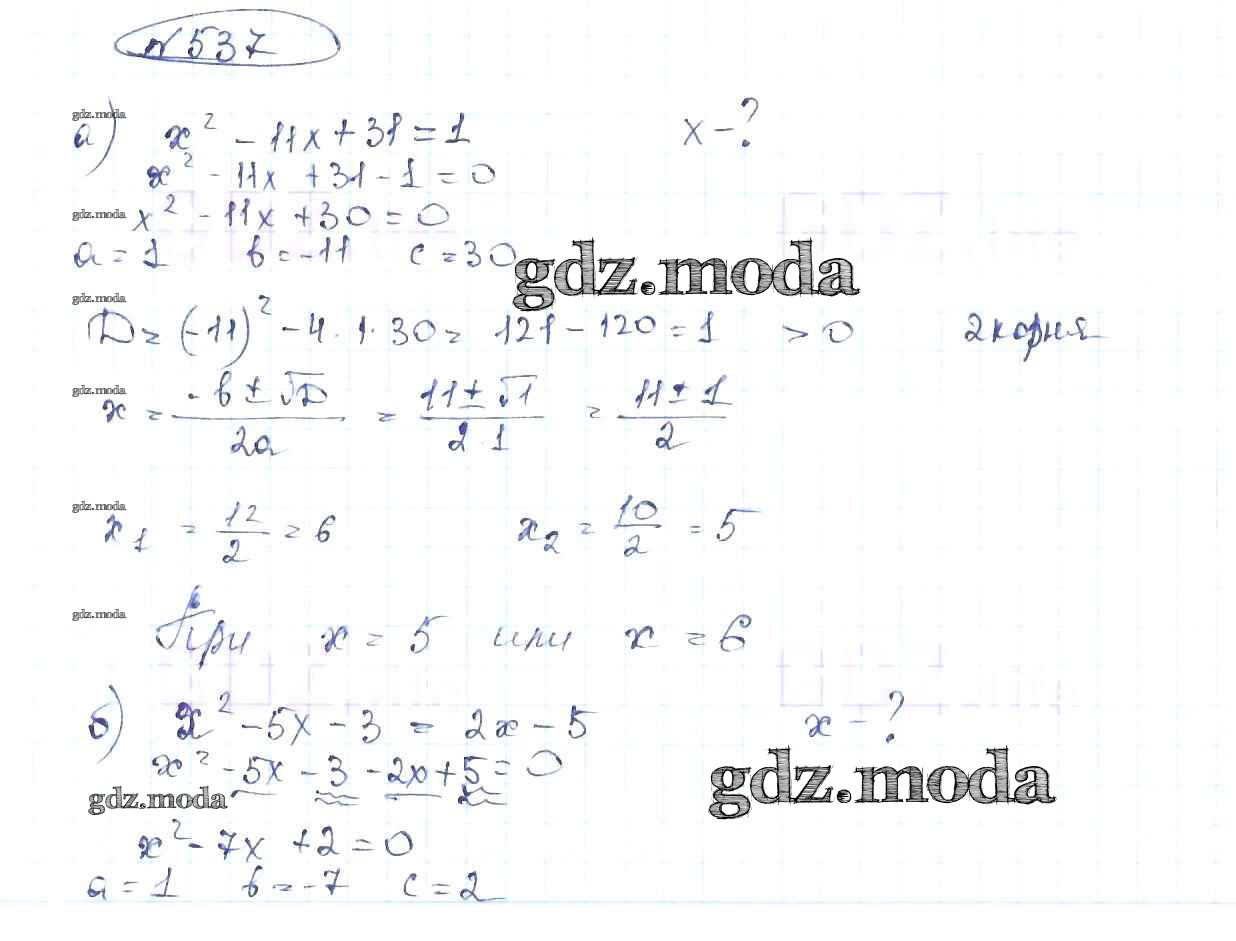 № 537
gdz.moda
а) x² - 11x + 31 = 1 x - ?
x² - 11x + 31 - 1 = 0
gdz.moda x² - 11x + 30 = 0
a = 1 b = -11 c = 30 gdz.moda
gdz.moda
D = (-11)² - 4 · 1 · 30 = 121 - 120 = 1 > 0 2 корня
gdz.moda
x = (-b ± √D)/(2a) = (11 ± √1)/(2 · 1) = (11 ± 1)/2
gdz.moda
x₁ = 12/2 = 6 x₂ = 10/2 = 5
gdz.moda
При x = 5 или x = 6
б) x² - 5x - 3 = 2x - 5 x - ?
x² - 5x - 3 - 2x + 5 = 0
gdz.moda gdz.moda
x² - 7x + 2 = 0
a = 1 b = -7 c = 2